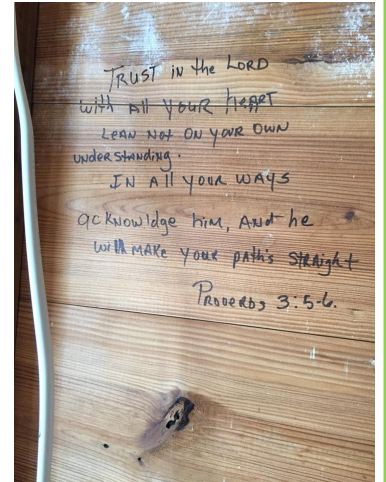 TRUST in the LORD
with All YOUR HEART
LEAN Not ON YOUR OWN
understanding.
IN All YOUR WAYS
acknowldge him, And he
will MAKE YOUR path's STRAIGHT
PROVERBS 3:5-6.